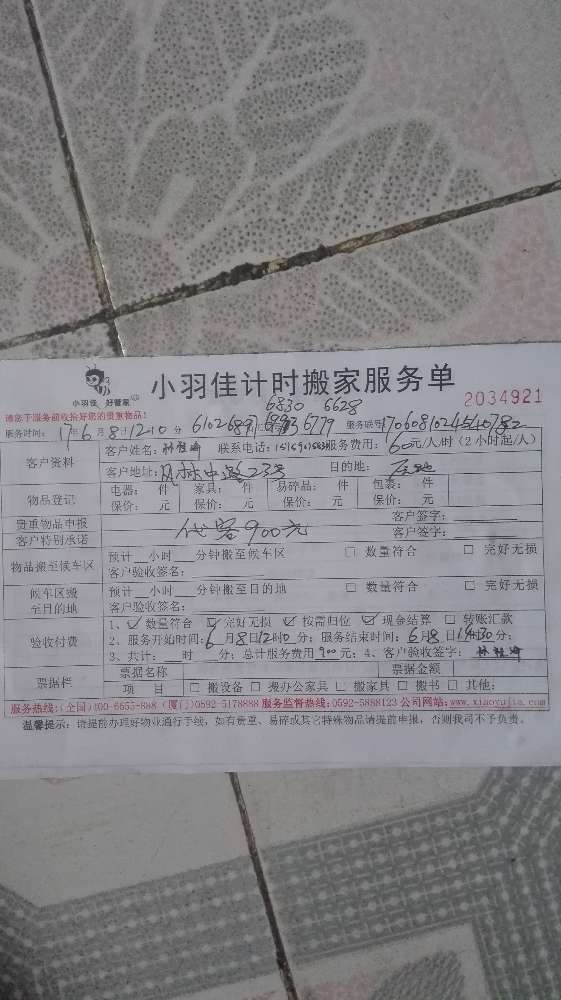 小羽佳 好管家
小羽佳计时搬家服务单
2034921
请您于服务前收拾好您的贵重物品!
6830 6628
服务时间: 17年6月8日12时10分 61026891 6779 服务账号
客户资料
客户姓名: 联系电话: 服务费用: 60元/人/时 (2小时起/人)
客户地址: 目的地:
物品登记
电器: 件 家具: 件 易碎品: 件 包裹: 件
保价: 元 保价: 元 保价: 元 保价: 元
贵重物品申报 客户签字:
客户特别承诺 900元 客户签字:
物品搬至候车区
预计__小时__分钟搬至候车区 □ 数量符合 □ 完好无损
客户验收签名:
候车区搬至目的地
预计__小时__分钟搬至目的地 □ 数量符合 □ 完好无损
客户验收签名:
验收付费
1、☑ 数量符合 ☑ 完好无损 ☑ 按需归位 ☑ 现金结算 □ 转账汇款
2、服务开始时间: 6月8日12时10分; 服务结束时间: 6月8日 时30分;
3、共计:__时__分; 总计服务费用900元; 4、客户验收签字:
票据栏
票据名称 票据金额
项 目 □ 搬设备 □ 搬办公家具 □ 搬家具 □ 搬书 □ 其他:
服务热线:(全国)400-6655-888 (厦门)0592-5178888 服务监督热线:0592-5888123 公司网站:www.xiaoyujia.com
温馨提示: 请提前办理好物业通行手续, 如有贵重、易碎或其它特殊物品请提前申报, 否则我司不予负责。